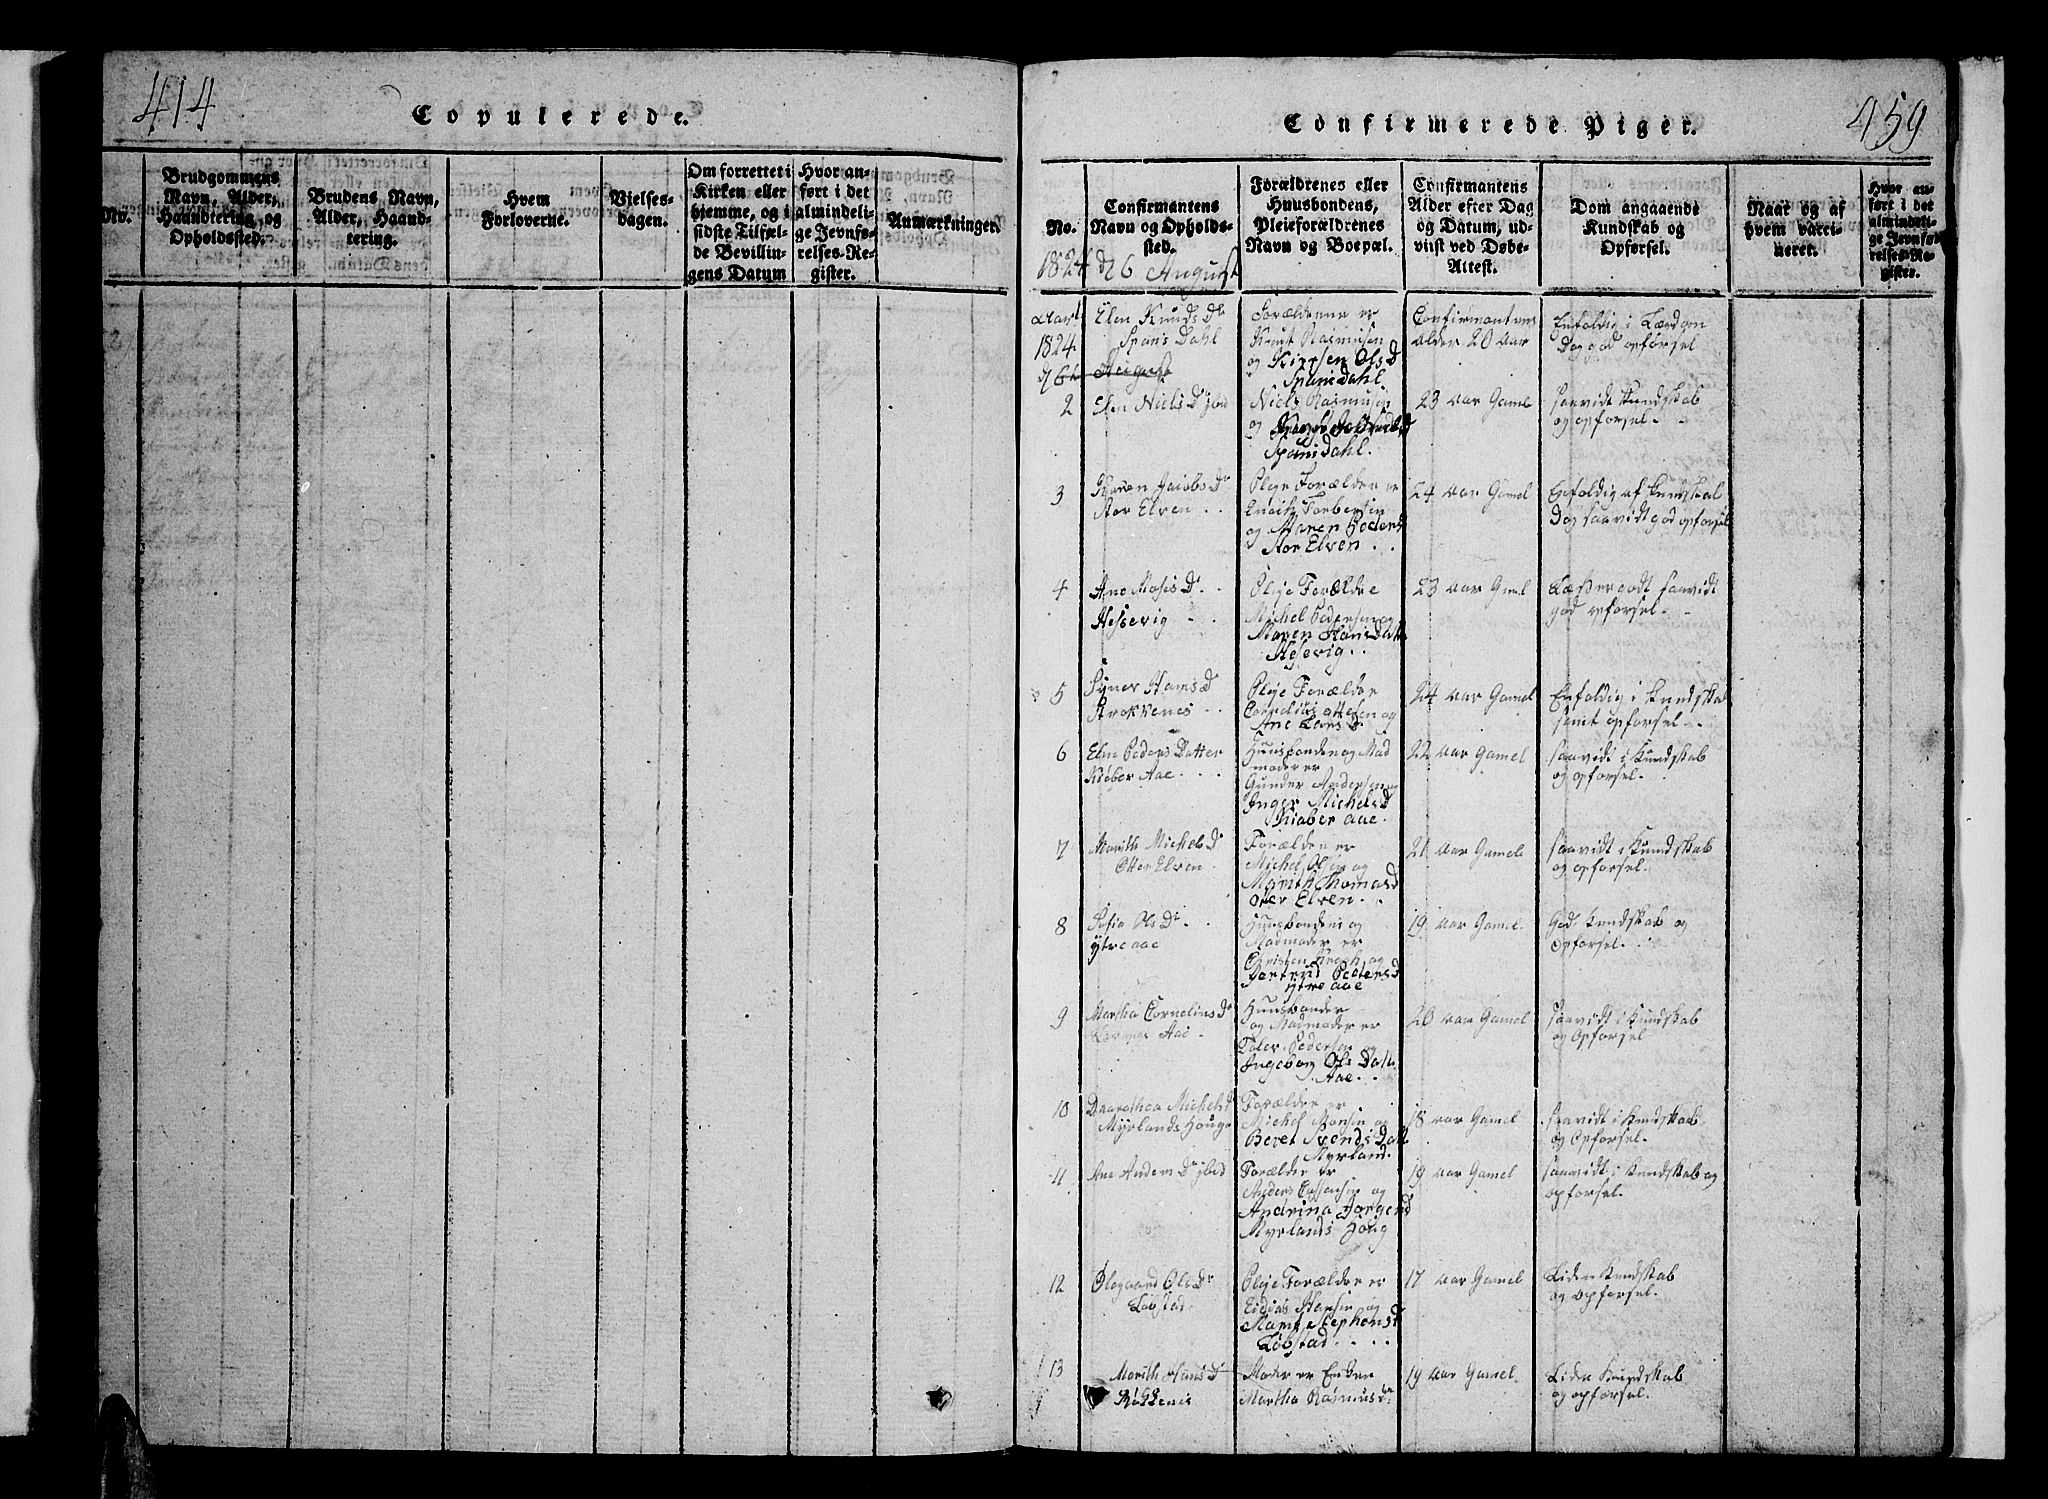 414
Copulerede.
No.
Brudgommens
Navn, Alder,
Haandtering og
Opholdssted.
Brudens Navn,
Alder, Haand-
tering.
Hvem
Forloverne.
Vielses-
dagen.
Om forrettet i
Kirken eller
hjemme, og i
sidste Tilfæl-
de Bevillin-
gens Datum
Hvor an-
ført i det
almindeli-
ge Jevnfø-
relses-Re-
gister.
Anmærkninger.
Confirmerede Piger.
459
No.
Confirmantens
Navn og Opholds-
sted.
Forældrenes eller
Huusbondens,
Pleieforældrenes
Navn og Boepæl.
Confirmantens
Alder efter Dag
og Datum, ud-
viist ved Døbe-
Attest.
Dom angaaende
Kundskab og
Opførsel.
Naar og af
hvem vacci-
neret.
Hvor an-
ført i det
almindeli-
ge Jevnfø-
relses-Re-
gister.
1824 d 6 August
1824
Elen Knuds Dr
Spans Dahl
August
Forældrene er
Knut Rasmusen
og Kirsten Ols D
Spansdahl
Confirmantens
alder 20 aar
Enfoldig i Lærdom
Dog god opførsel
2
Elen Niels Dr ibid
Niels Rasmusen
og
Spansdahl.
23 aar Gamel
saavidt kundskab
og opførsel.
3
Karen Jacobs Dr
Stor Elven
Pleje Forældre er
og Maren Peders D
Stor Elven
24 aar Gamel
Enfoldig af kundskab
Dog saavidt god opførsel
4
Ane Moses Dr
Hessevig
Pleje Forældre
Michel Pedersen og
Maren Hans Datter
Hesevig
23 aar Gamel
saavidt
god opførsel.
5
Hans D
Strokkenes
Pleje Forældre
Cornelius Ottesen og
Ane Lars D
24 aar Gamel
Enfoldig i kundskab
samt opførsel
6
Elen Peders Datter
Kiøber Aae
Huusbonden og Mad
moder er
Gunder Andersen og
Inger Michels D
Kiøber aae.
22 aar Gamel
saavidt i Kundskab
og opførsel.
7
Marith Michels D
Otter Elven
Forældre er
Michel Olsen og
Marith Thomas D
Otter Elven
21 aar Gamel
saavidt i Kundskab
og opførsel.
8
Sofia Ols Dr
Ytre aae
Huusbonden og
Madmoder er
Christen Krogh og
Gertrud Peders D
Ytre aae
19 aar Gamel
God Kundskab og
Opførsel.
9
Martha Cornelius Dr
Aae
Huusbonder
og Madmoder er
Peder Pedersen og
Ingeborg Ols Datter
Aae
20 aar Gamel
saavidt i Kundskab
og Opførsel
10
Daarothea Michels D
Myrlands Houge
Forældre er
Michel Monsen og
Beret Svends Datt
Myrland.
18 aar Gamel
saavidt i Kundskab
og Opførsel.
11
Ane Anders Dr ibid
Forældre er
Anders og
Andrina Jørgens D
Myrlands Houg
19 aar Gamel
saavidt i Kundskab og
opførsel.
12
Olegaard Ols Dr
Løbstad
Pleje Forældre er
Hansen og
Stephens D
Løbstad
17 aar Gamel
Liden Kundskab
og opførsel.
13
Marith Hans D
Røkkenes
Moder er Enken
Martha Rasmus Dr
19 aar Gamel
Liden Kundskab
og opførsel.